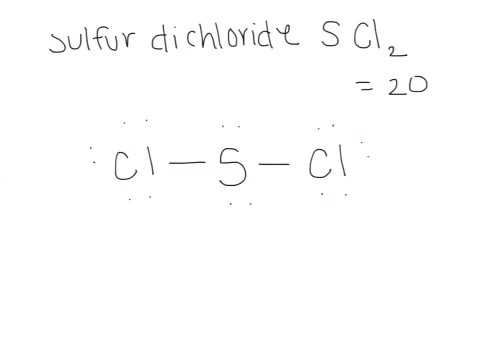 sulfur dichloride SCl₂
= 20
:Cl — S — Cl: